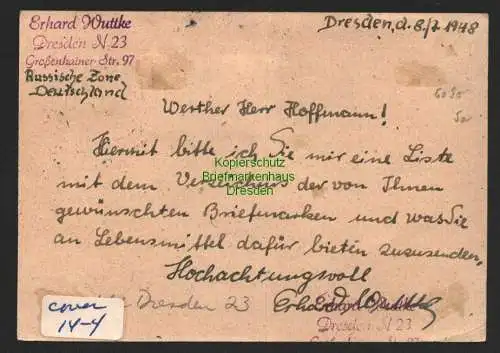 Erhard Wuttke
Dresden N 23
Großenhainer Str. 97
Russische Zone
Deutschland
Dresden, d. 8/7 1948
Werther Herr Hoffmann!
Hiermit bitte ich Sie mir eine Liste
mit dem Verzeichnis der von Ihnen
gewünschten Briefmarken und was Sie
an Lebensmittel dafür bieten zuzusenden.
Hochachtungsvoll
Erhard Wuttke
Dresden 23
Erhard Wuttke
Dresden N 23
Kopierschutz
Briefmarkenhaus
Dresden
cover
14-4